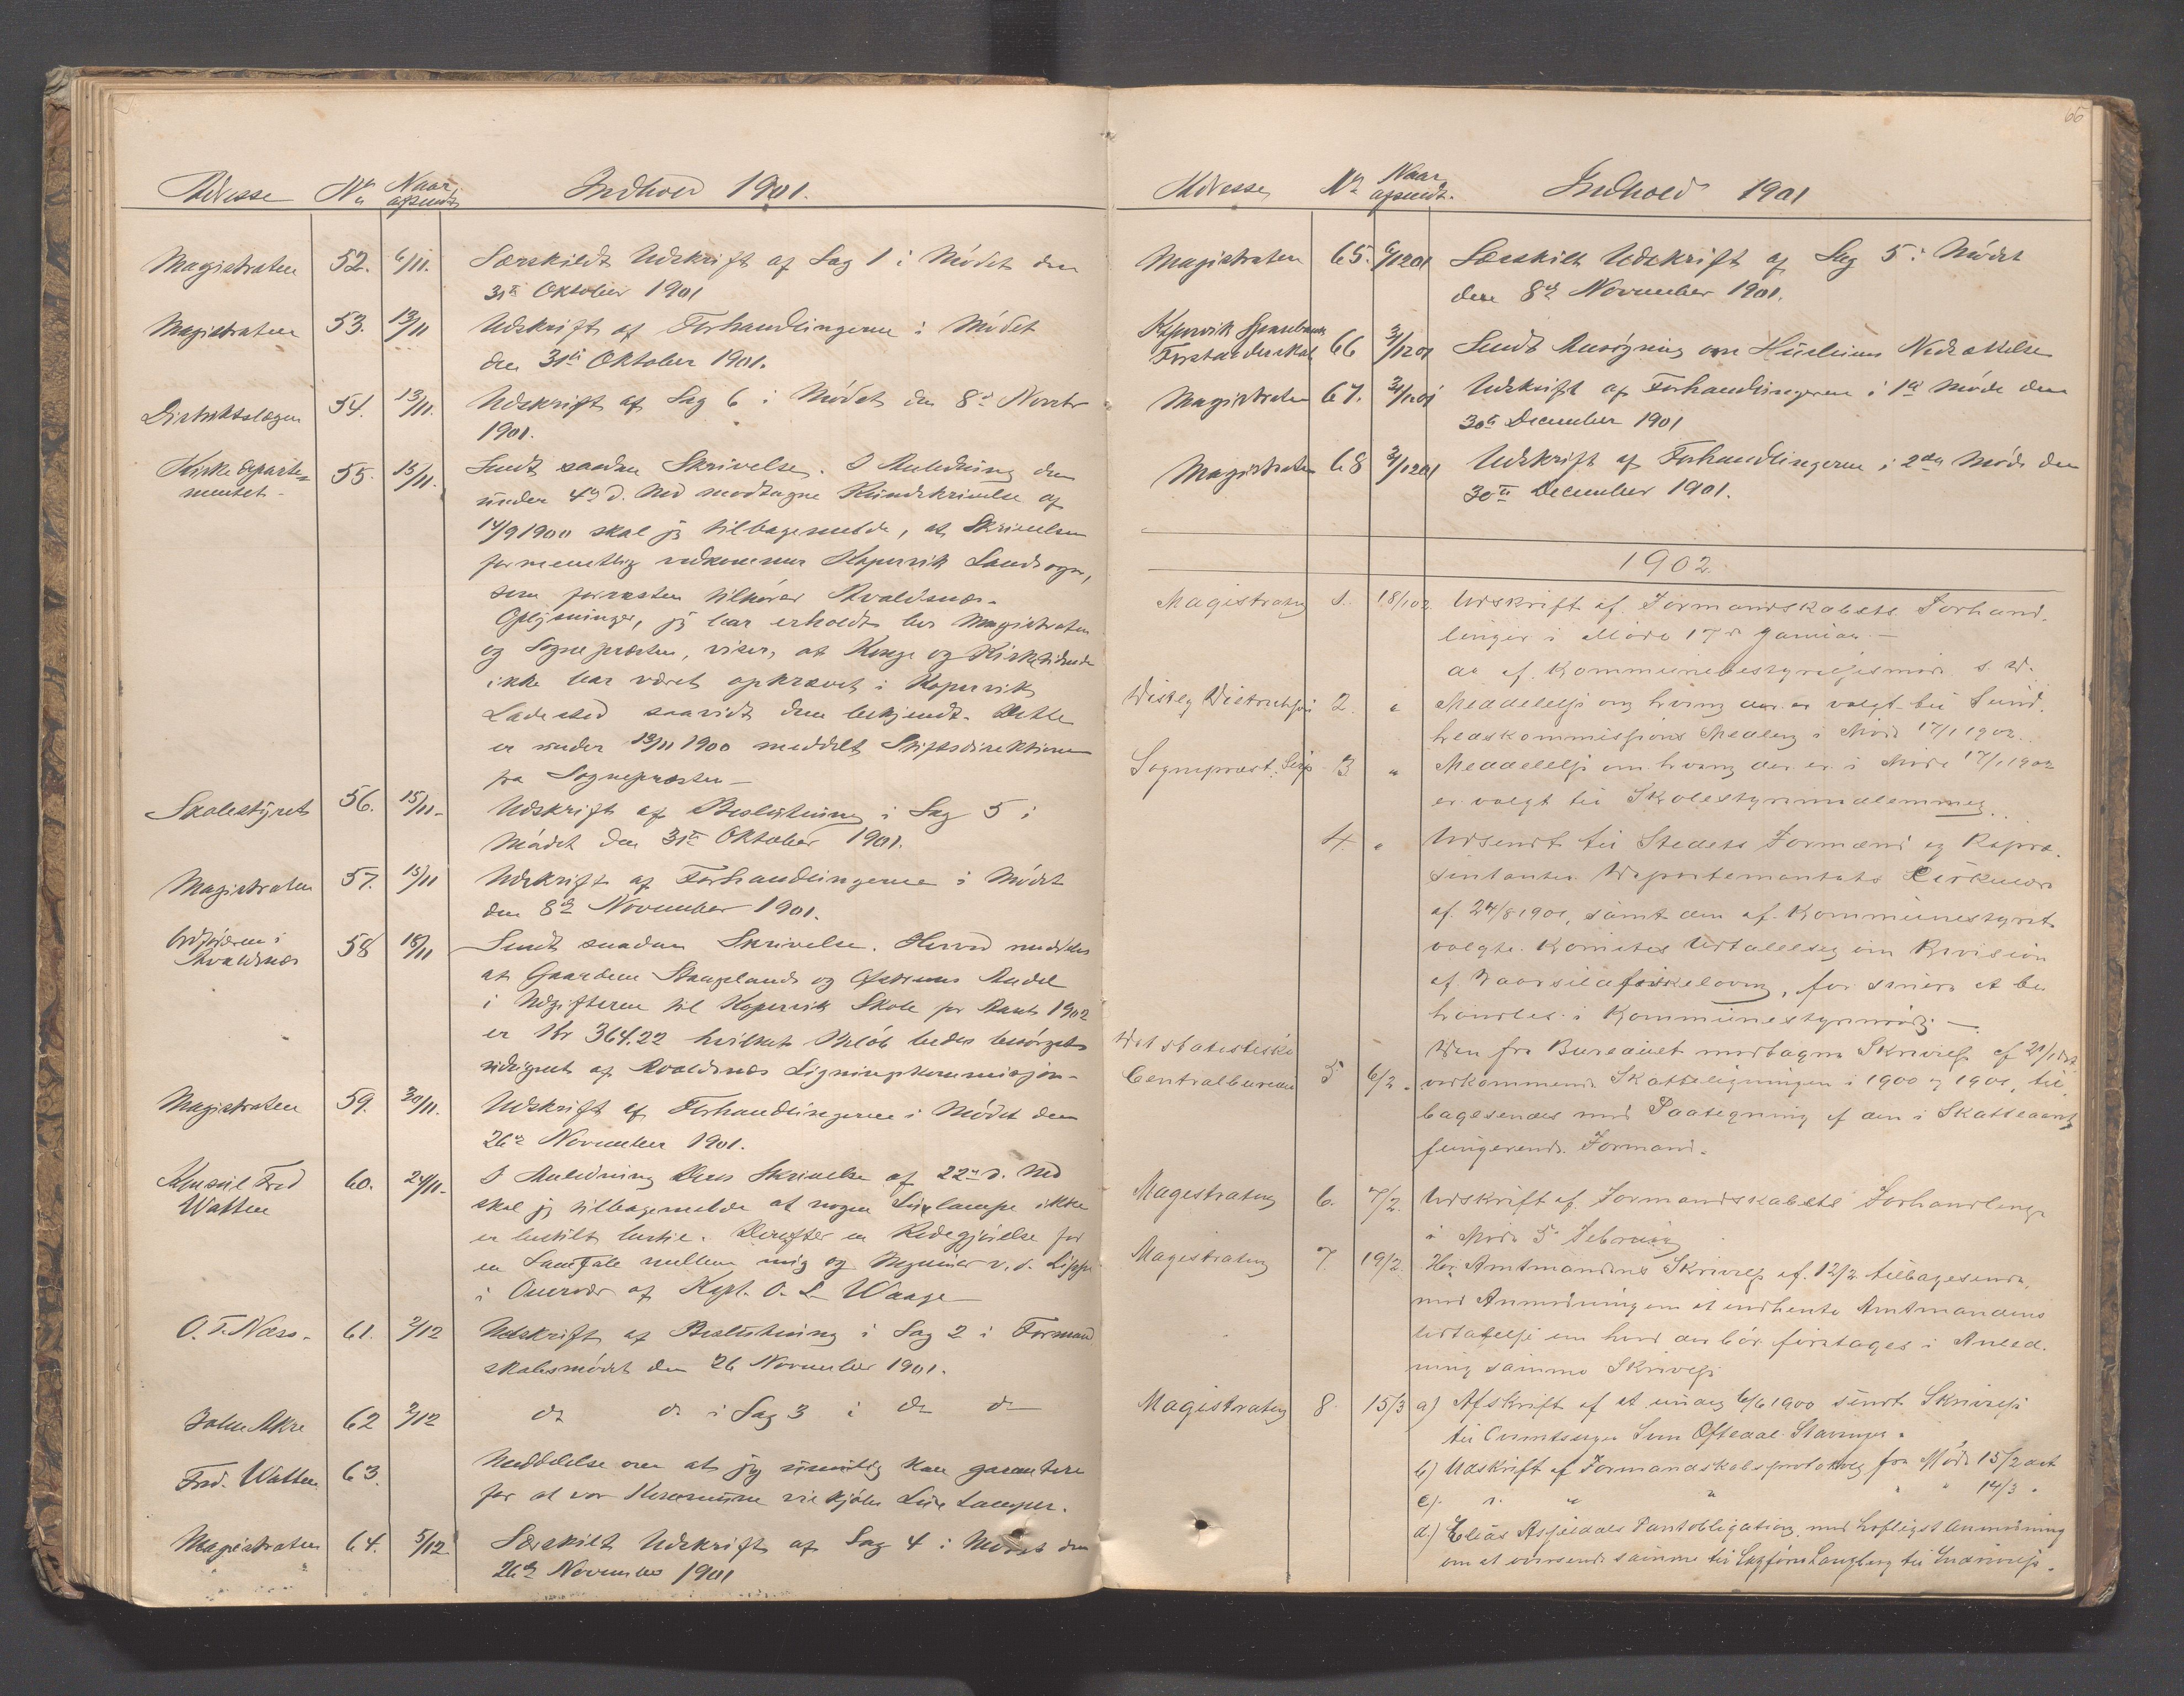 Adresse No Naar afsendt Indhold 1901.
Magistraten 52. 6/11. Særskildt Udskrift af Sag 1 i Mødet den
31te Oktober 1901
Magistraten 53. 13/11 Udskrift af Forhandlingerne i Mødet
den 31te Oktober 1901.
Distriktslægen 54. 13/11. Udskrift af Sag 6 i Mødet den 8de Novbr
1901.
Kirkedeparte-
mentet. 55. 15/11. Sendt saadan Skrivelse. I Anledning den
under 4de d. Md modtagne Rundskrivelse af
14/9 1900 skal jeg tilbagemelde, at Skrivelsen
formentlig vedkommer Kopervik Landsogn,
som forresten tilhører Avaldsnæs.
Oplysninger, jeg har erholdt hos Magistraten
og Sognepræsten, viser, at Konge og Kirketiende
ikke har været opkrævet i Kopervik
Ladested saavidt dem bekjendt. Dette
er under 19/11 1900 meddelt Stiftsdirektionen
fra Sognepræsten
Skolestyret 56. 15/11. Udskrift af Beslutning i Sag 5 i
Mødet den 31te Oktober 1901.
Magistraten 57. 15/11 Udskrift af Forhandlingerne i Mødet
den 8de November 1901.
Ordføreren i
Avaldsnæs 58 18/11 Sendt saadan Skrivelse. Herved meddeles
at Gaardene Stangelands og Østrems Andel
i Udgifterne til Kopervik Skole for Aaret 1902
er Kr 364.22 hvilket Beløb bedes besørget
udlignet af Avaldsnæs Ligningskommisjon.
Magistraten 59. 30/11. Udskrift af Forhandlingerne i Mødet den
26de November 1901.
Konsul Fred
Watten 60. 24/11. I Anledning Deres Skrivelse af 22de d. Md
skal jeg tilbagemelde at nogen Luxlampe ikke
er bestilt hertil. Derefter en Redegjørelse for
en Samtale mellem mig og
i Overvær af Kapt. O. L Waage
O. T. Næss. 61. 2/12 Udskrift af Beslutning i Sag 2 i Formand
skabsmødet den 26 November 1901.
John Akre 62 2/12 do do i Sag 3 i do do
Fred. Watten 63. Meddelelse om at jeg umulig kan garantere
for at vor Kommune vil kjøbe Lux Lamper.
Magistraten 64. 5/12 Særskilt Udskrift af Sag 4 i Mødet den
26de November 1901
66
Adresse No Naar afsendt. Indhold 1901
Magistraten 65. 6/12 01 Særskilt Udskrift af Sag 5 i Mødet
den 8de November 1901.
Kopervik Sparebank
Forstanderskab 66 31/12 01 Sendt Ansøgning om Nedsættelse
Magistraten 67. 31/12 01 Udskrift af Forhandlingerne i 1ste Møde den
30te December 1901
Magistraten 68 31/12 01 Udskrift af Forhandlingerne i 2det Møde den
30te December 1901.
1902.
Magistraten 1. 18/1 02. Udskrift af Formandskabets Forhand.
linger i Møde 17de Januar.
do af Kommunebestyrelsesmøde s. D.
2. " Meddelelse om hvem der er valgt til Sund.
hedskommissions Medlem i Møde 17/1 1902.
Sognepræst 3 " Meddelelse om hvem der er i Møde 17/1 1902
er valgt til Skolestyremedlemmer.
4 " Udsendt til Stedets Formænd og Repræ.
sentanter Departementets Cirkulær
af 24/8 1901, samt den af Kommunestyret
valgte Komites Udtalelse om Revision
af Vaarsildfiskeloven, for senere at be
handles i Kommunestyremøde.
Det statistiske
Centralbureau 5 6/2. Den fra Bureauet modtagne Skrivelse af 21/1 1902
vedkommende Skatteligningen i 1900 og 1901, til
bagesendes med Paategning af den i Skatteaaret
fungerende Formand.
Magistraten 6. 7/2. Udskrift af Formandskabets Forhandlinger
i Møde 5 Februar
Magistraten 7. 19/2. Hr. Amtmandens Skrivelse af 12/2 tilbagesendes
med Anmodning om at indhente Amtmandens
Udtalelse om hvad der bør foretages i Anled.
ning samme Skrivelse
Magistraten 8 15/3 a) Afskrift af et under 6/6 1900 sendt Skrivelse
til Oftedal Stavanger.
b) Udskrift af Formandskabsprotokol fra Møde 15/2 det
c) " " " " " 14/3.
d.) Elias Pantobligation, med høfligst Anmodning
om at oversende samme til Sagfører til